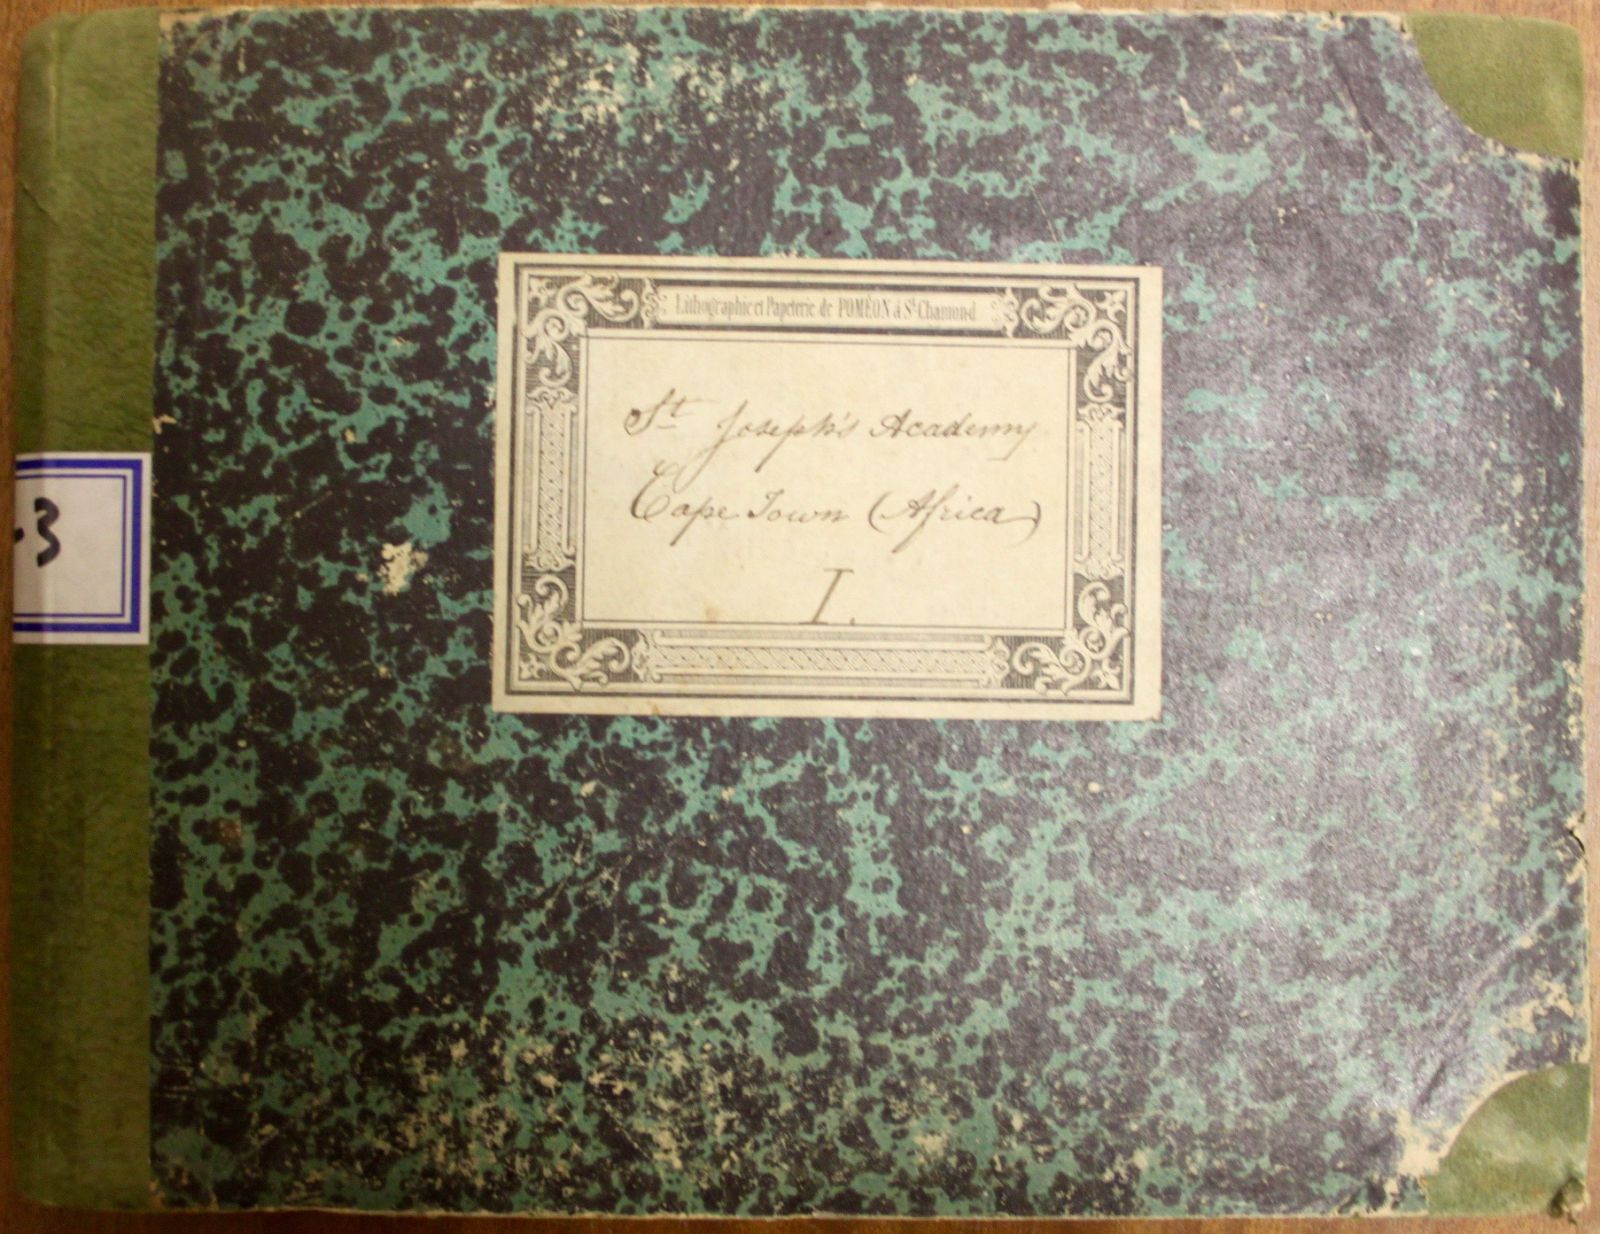 Lithographie et Papeterie de POMÉON à St Chamond
St Joseph's Academy
Cape Town (Africa)
I.
-3